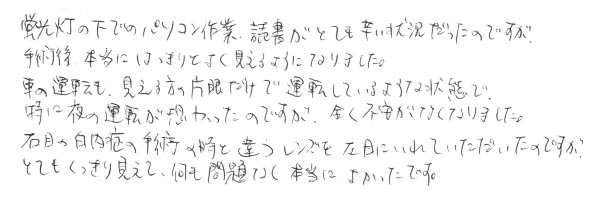 蛍光灯の下でのパソコン作業、読書がとても辛い状況だったのですが、
手術後、本当にはっきりとよく見えるようになりました。
車の運転も、見える方の片眼だけで運転しているような状態で、
特に夜の運転が怖かったのですが、全く不安がなくなりました。
右目の白内症の手術の時と違うレンズを左目にいれていただいたのですが、
とてもくっきり見えて、何も問題なく本当によかったです。